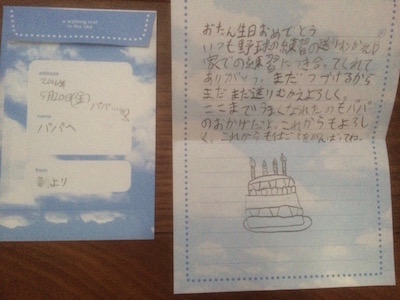 a wishing star
in the sky
address
2016年
5月20日(金)
パパ...
name
パパへ
from
より
おたん生日おめでとう
いつも野球の練習の送りむかえや
家での練習につき合ってくれて
ありがとう。まだつづけるから
まだまだ送りむかえよろしく。
ここまでうまくなれたのもパパ
のおかげだよ。これからもよろし
く。これからも仕ごとをがんばってね。